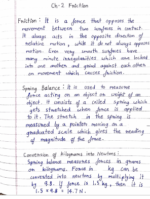 Ch-2 Friction
Friction : It is a force that opposes the
movement between two surfaces in contact.
It always acts in the opposite direction of
relative motion, while it do not always oppose
motion. Even very smooth surfaces have
many minute irregularities which are locked
into one another and grind against each other
on movement which causes friction.
Spring Balance : It is used to measure
force acting on an object or weight of an
object. It consists of a coiled spring which
gets stretched when force is applied
to it. The stretch in the spring is
measured by a pointer moving on a
graduated scale which gives the reading
of magnitude of the force.
Conversion of kilograms into Newtons :
Spring balance measures forces in grams
or kilograms. Force in kg can be
converted into newtons by multiplying it
by 9.8. If force is 1.5 kg, then it is
1.5 × 9.8 = 14.7 N.